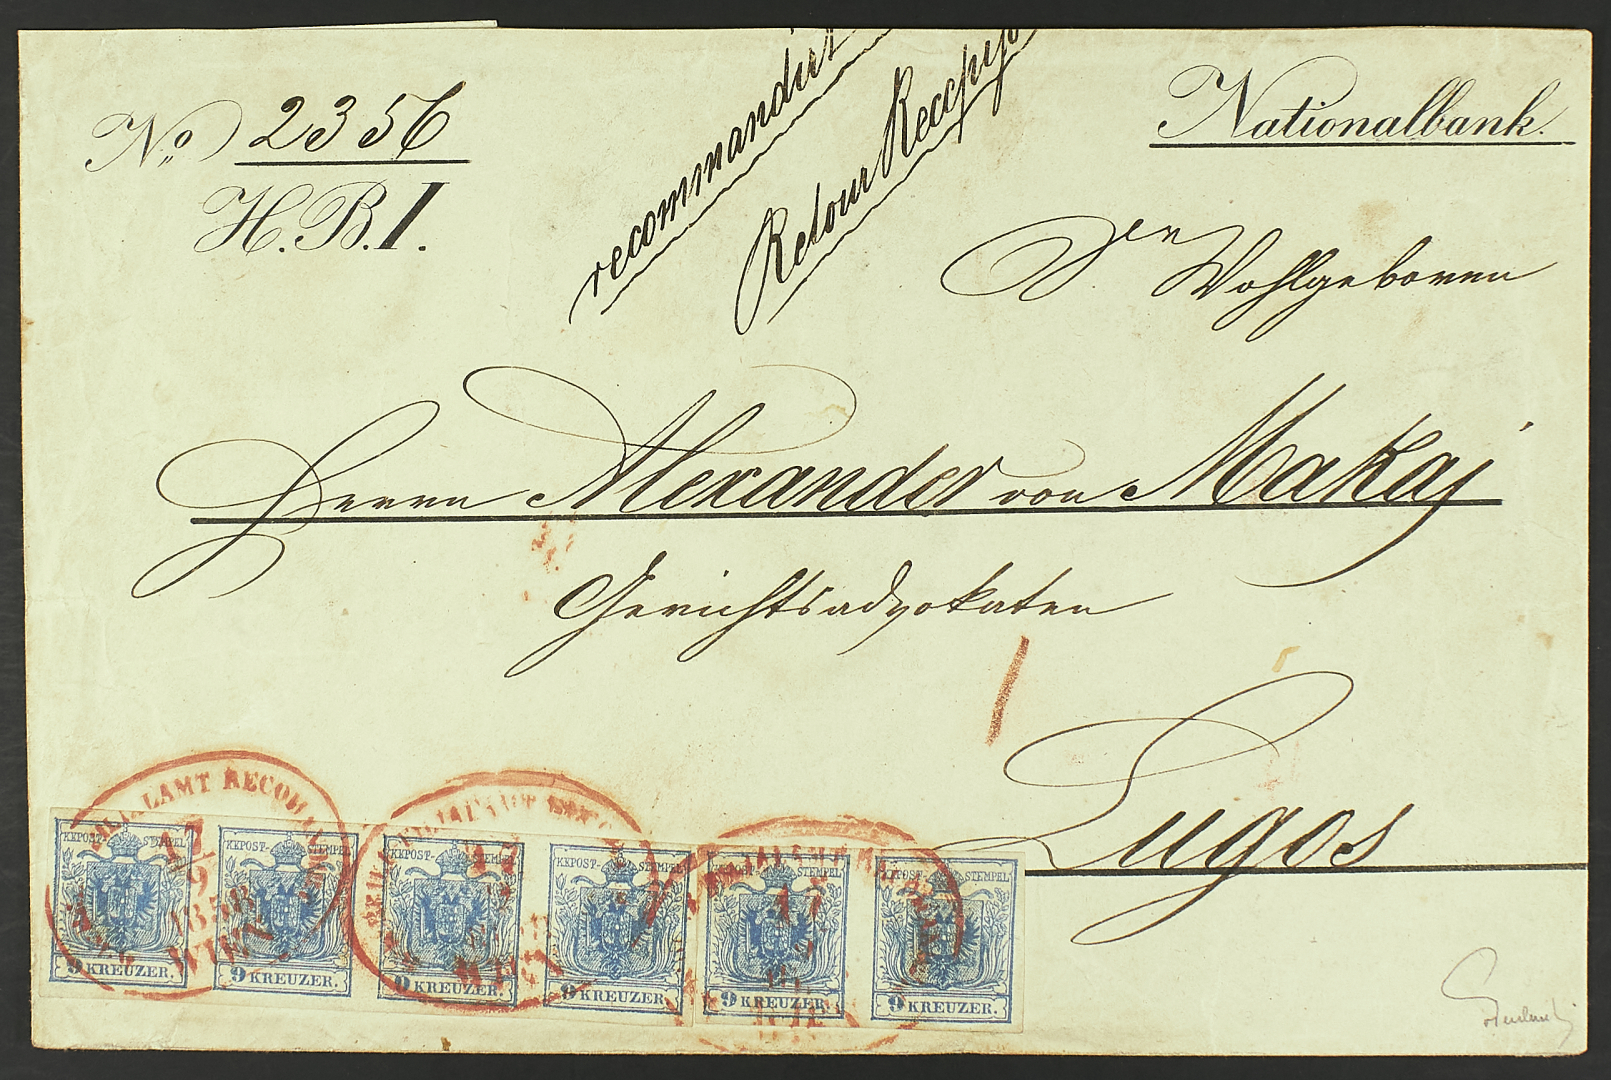 No. 2356
H.B.I.
recommandirt
Retour Recepisse
Nationalbank.
Sr. Wohlgeboren
Herrn Alexander von Makaj
Gerichtsadvokaten
Lugos
FILIALAMT RECOM
17/9
1858
WIEN
KKPOST-STEMPEL
9 KREUZER.
KKPOST-STEMPEL
9 KREUZER.
KKPOST-STEMPEL
9 KREUZER.
KKPOST-STEMPEL
9 KREUZER.
KKPOST-STEMPEL
9 KREUZER.
KKPOST-STEMPEL
9 KREUZER.